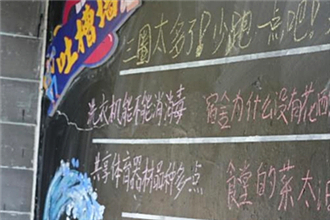 吐槽
三圈太多了!少跑一点吧!
洗衣机能不能消毒 宿舍为什么没有花
共享体育器材品种多一点 食堂的菜太